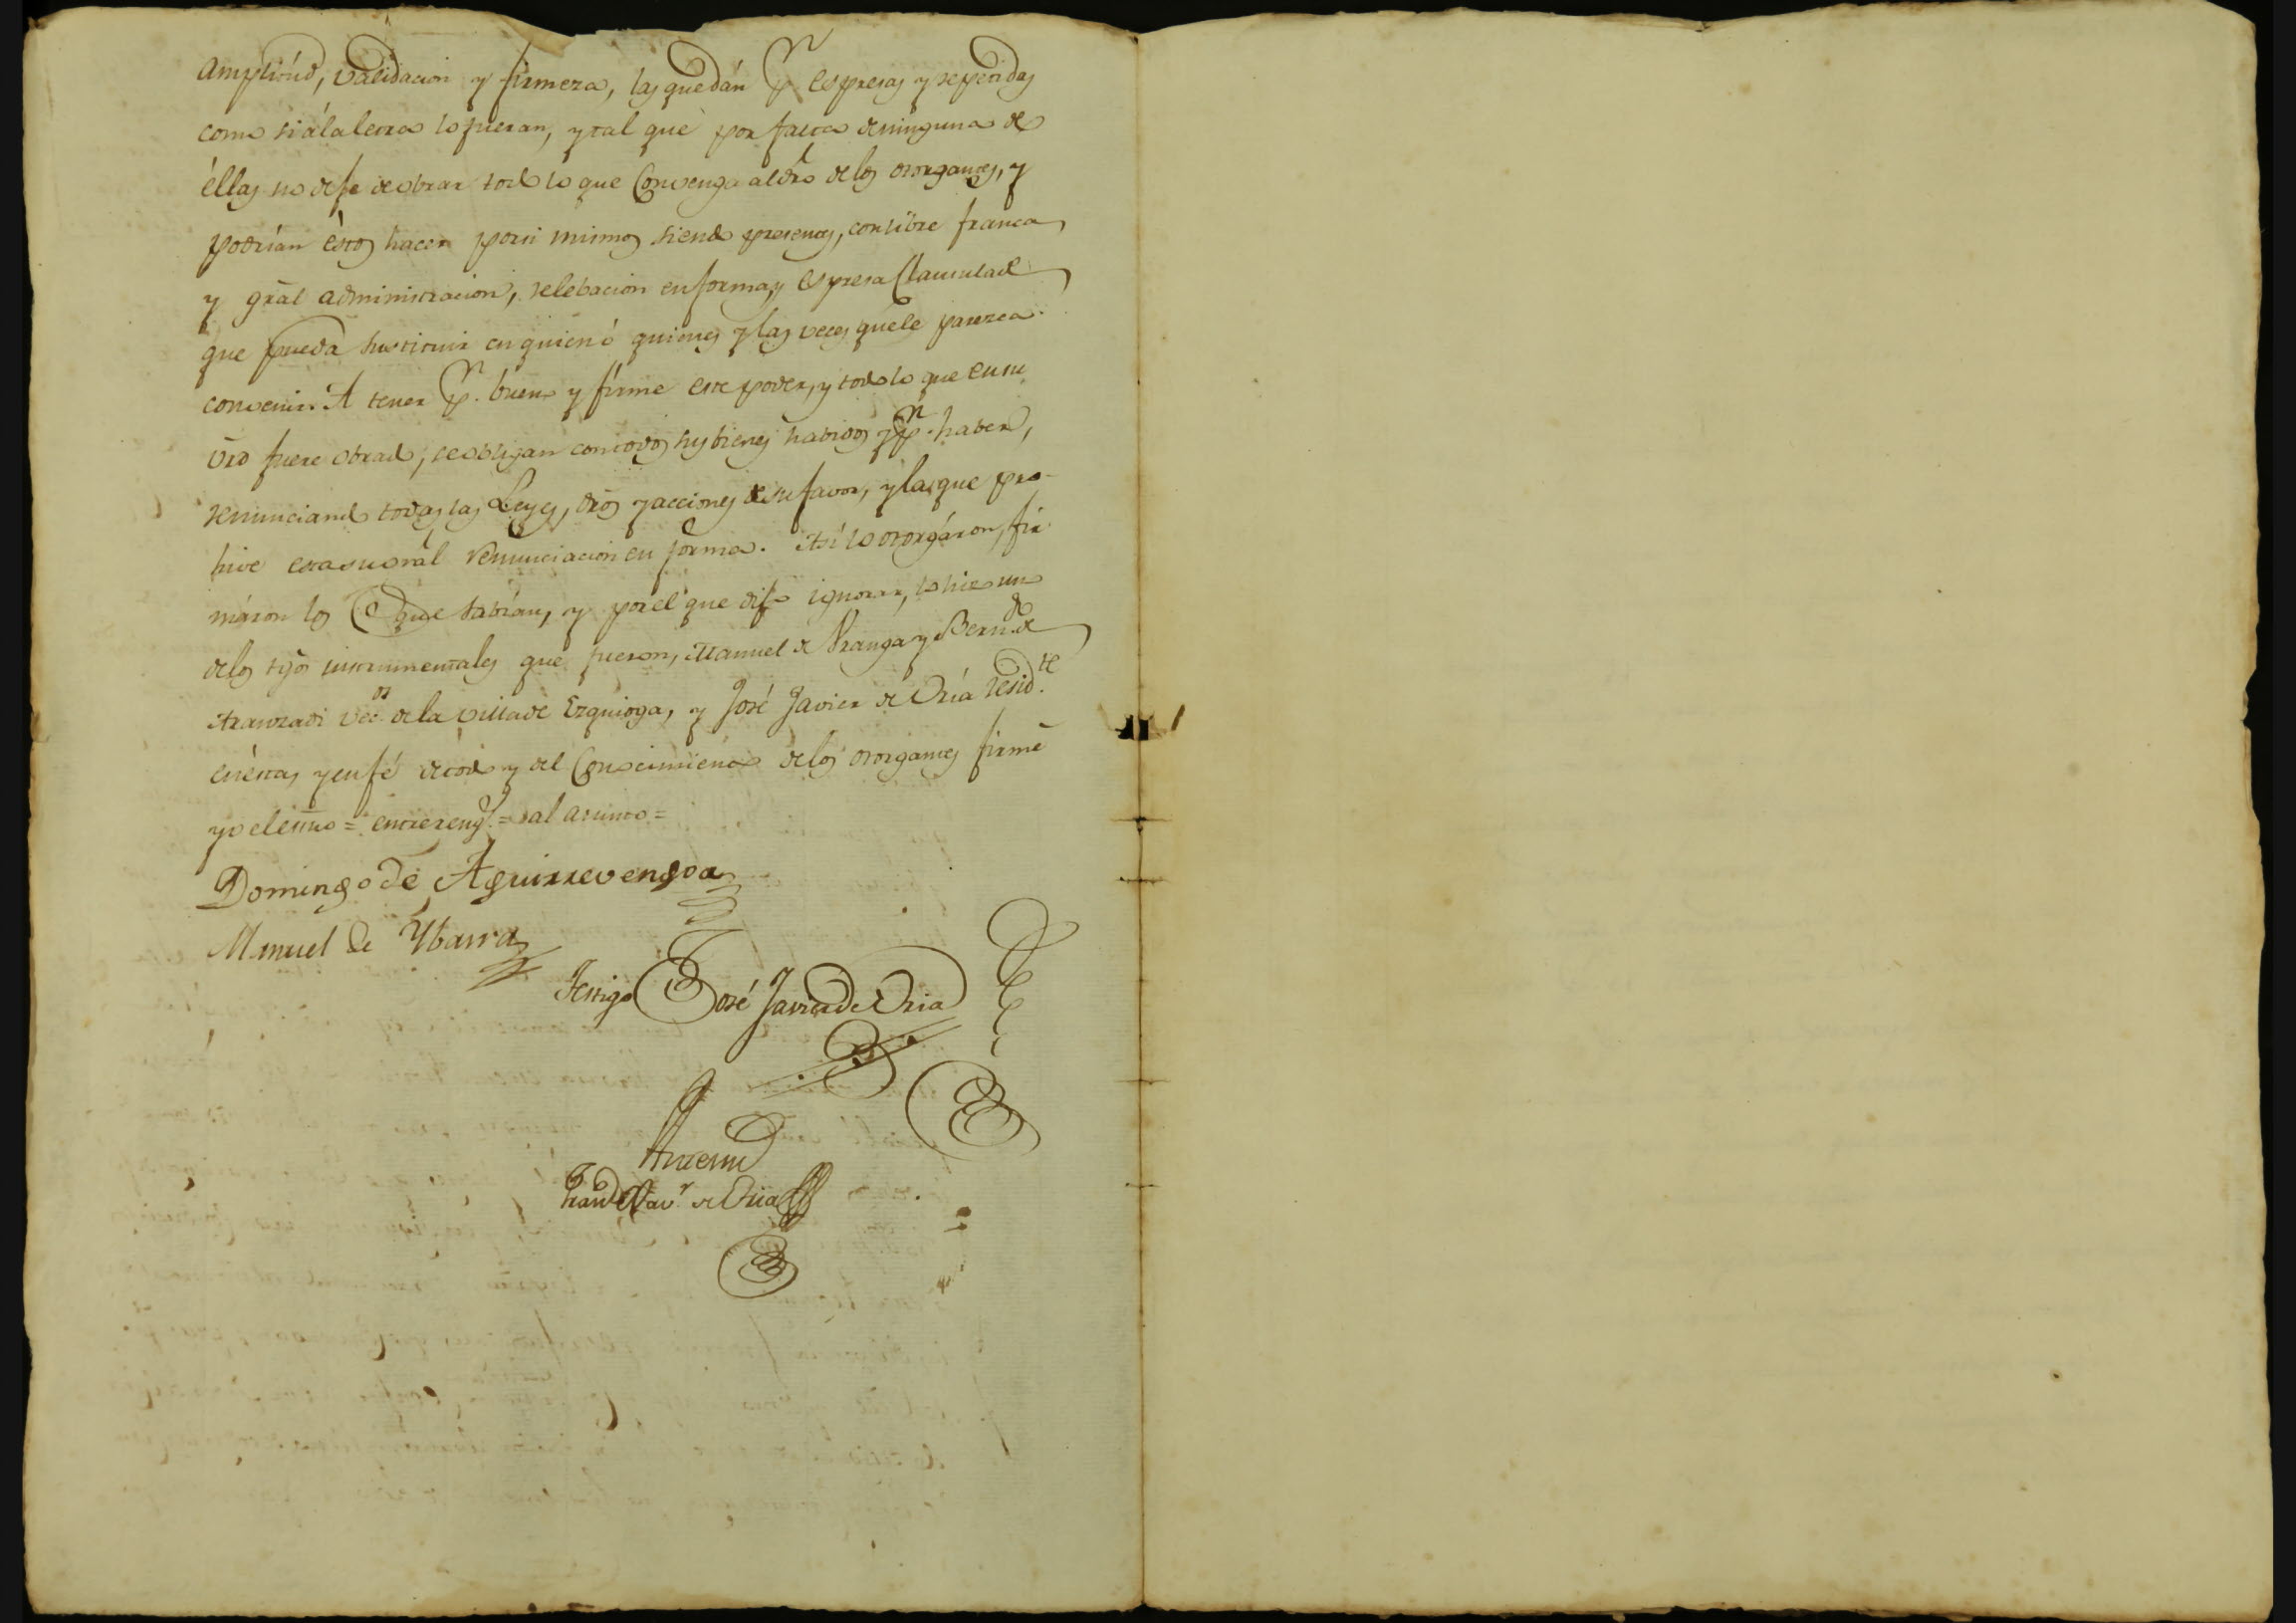 amplitúd, validacion y firmeza, las quedán p.r espresas y repetidas
como si á la letra lo fueran, y tal que por falta de ninguna de
éllas no deje de obrar todo lo que Convenga al dro de los otorgantes, y
podrían éstos hacer por si mismos siendo presentes, con libre franca
y grãl administracion, relebacion en forma, y espresa Clausula de
que pueda sustituir en quien ó quienes y las veces que le parezca
convenir. A tener p.r bueno y fírme este poder, y todo lo que en su
vrd fuere obrado, se obligan con todos sus bienes habidos y p.r haber,
renunciando todas las Leyes, dros y acciones de su favor, y la que pro-
hive esta su gral renunciacion en forma. Asi lo otorgáron, fir
máron los que sabían, y por el que dijo ignorar, lo hizo uno
de los tgõs instrumentales que fueron, Manuel de Aranga y Bern.do de
Aranzadi vec.os de la villa de Ezquioga, y José Javier de Oría resid.te
en ésta, y en fé de todo y del Conocimiento de los otorgantes firmé
yo el essno = entrereng.s = al asunto =
Domingo de Aguirrevengoa
Manuel de Ybarra
Testigo José Javier de Oria
Antemi
Xav.r de Oria